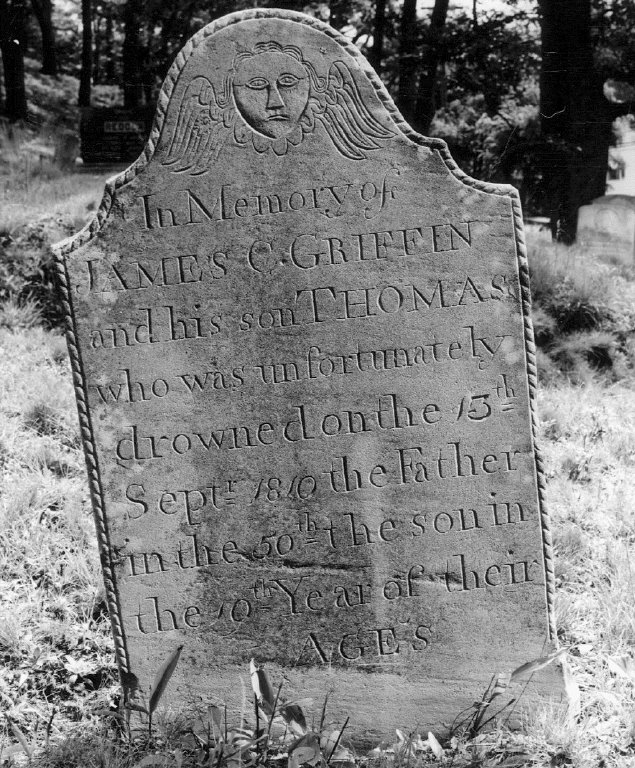 In Memory of
JAMES C. GRIFFIN
and his son THOMAS
who was unfortunately
drowned on the 13th
Septr 1810 the Father
in the 50th the son in
the 10th Year of their
AGES